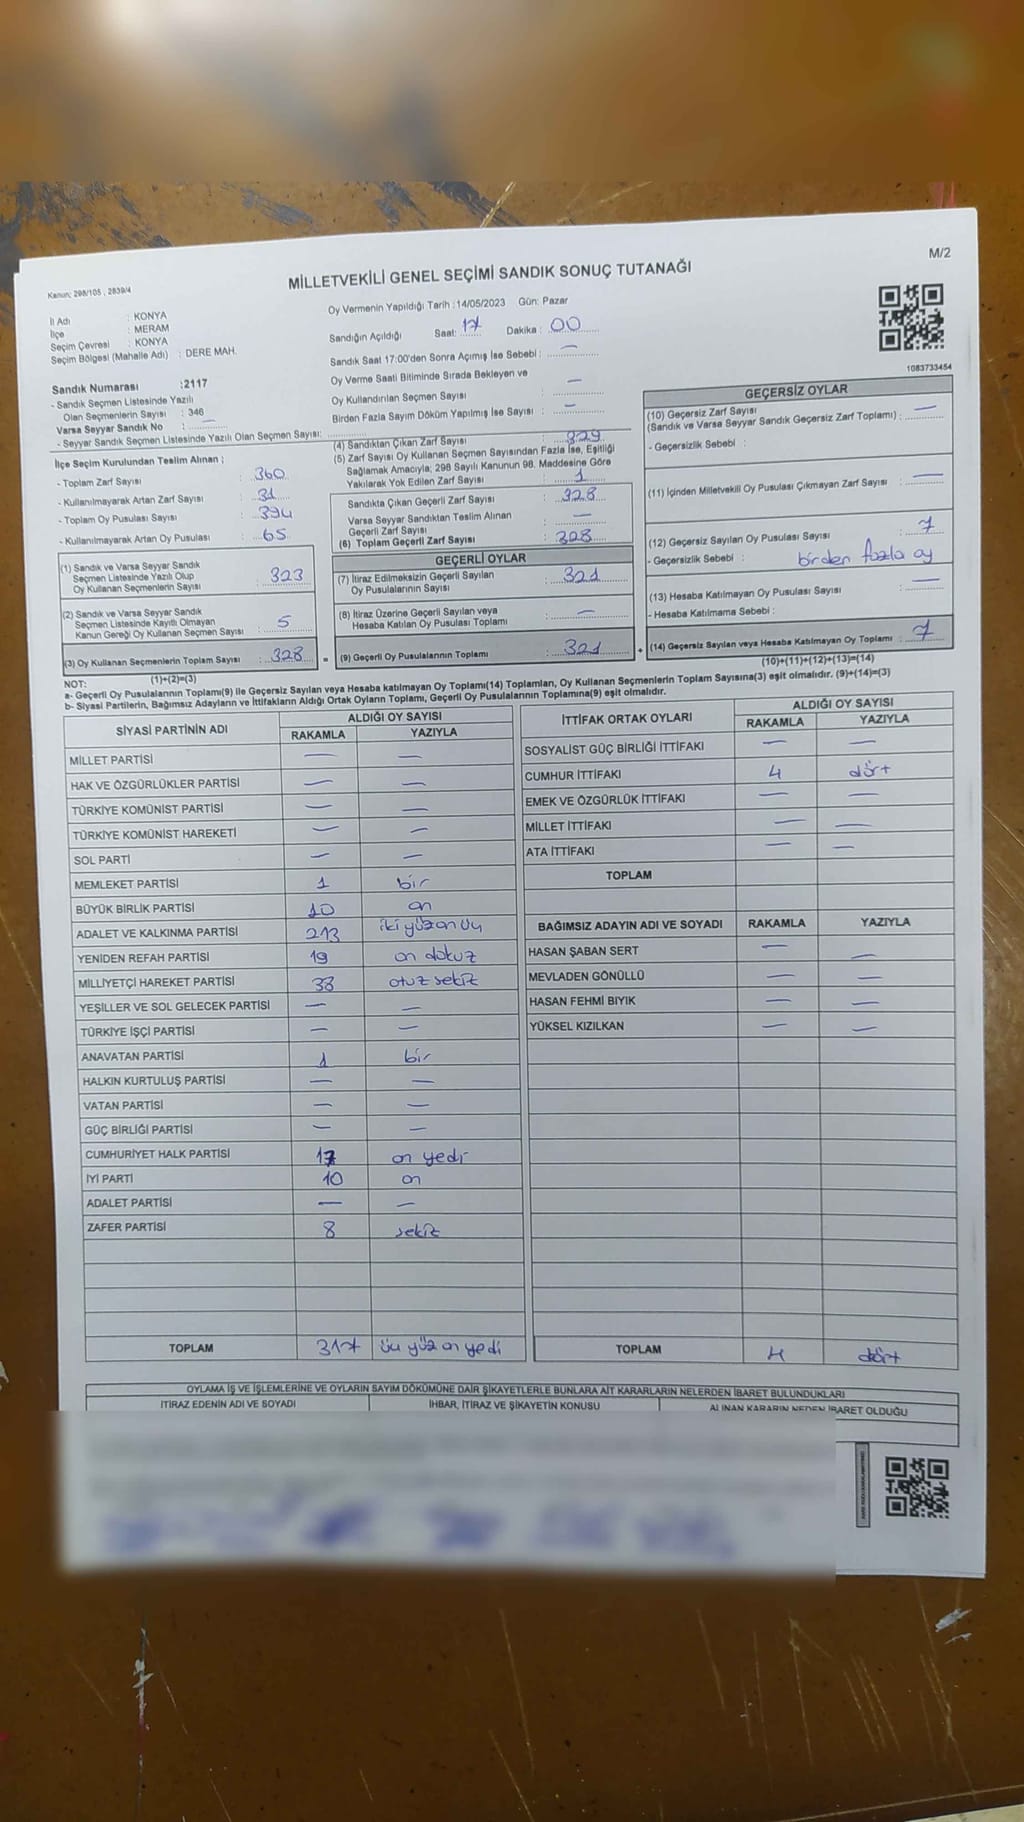 M/2
MİLLETVEKİLİ GENEL SEÇİMİ SANDIK SONUÇ TUTANAĞI
Kanun: 298/105 , 2839/4
Oy Vermenin Yapıldığı Tarih :14/05/2023 Gün: Pazar
İl Adı : KONYA
İlçe : MERAM
Seçim Çevresi : KONYA
Seçim Bölgesi (Mahalle Adı) : DERE MAH.
Sandığın Açıldığı Saat: 17 Dakika : 00
Sandık Saat 17:00'den Sonra Açımış İse Sebebi : —
Oy Verme Saati Bitiminde Sırada Bekleyen ve
Oy Kullandırılan Seçmen Sayısı : —
Birden Fazla Sayım Döküm Yapılmış İse Sayısı : —
1083733454
Sandık Numarası :2117
- Sandık Seçmen Listesinde Yazılı
Olan Seçmenlerin Sayısı : 346
Varsa Seyyar Sandık No : —
- Seyyar Sandık Seçmen Listesinde Yazılı Olan Seçmen Sayısı:
İlçe Seçim Kurulundan Teslim Alınan ;
- Toplam Zarf Sayısı : 360
- Kullanılmayarak Artan Zarf Sayısı : 31
- Toplam Oy Pusulası Sayısı : 394
- Kullanılmayarak Artan Oy Pusulası : 65
(1) Sandık ve Varsa Seyyar Sandık
Seçmen Listesinde Yazılı Olup
Oy Kullanan Seçmenlerin Sayısı : 323
(2) Sandık ve Varsa Seyyar Sandık
Seçmen Listesinde Kayıtlı Olmayan
Kanun Gereği Oy Kullanan Seçmen Sayısı : 5
(3) Oy Kullanan Seçmenlerin Toplam Sayısı : 328 =
(1)+(2)=(3)
(4) Sandıktan Çıkan Zarf Sayısı : 329
(5) Zarf Sayısı Oy Kullanan Seçmen Sayısından Fazla İse, Eşitliği
Sağlamak Amacıyla; 298 Sayılı Kanunun 98. Maddesine Göre
Yakılarak Yok Edilen Zarf Sayısı : 1
Sandıkta Çıkan Geçerli Zarf Sayısı : 328
Varsa Seyyar Sandıktan Teslim Alınan
Geçerli Zarf Sayısı : —
(6) Toplam Geçerli Zarf Sayısı : 328
GEÇERLİ OYLAR
(7) İtiraz Edilmeksizin Geçerli Sayılan
Oy Pusulalarının Sayısı : 321
(8) İtiraz Üzerine Geçerli Sayılan veya
Hesaba Katılan Oy Pusulası Toplamı : —
(9) Geçerli Oy Pusulalarının Toplamı : 321 +
GEÇERSİZ OYLAR
(10) Geçersiz Zarf Sayısı
(Sandık ve Varsa Seyyar Sandık Geçersiz Zarf Toplamı) : —
- Geçersizlik Sebebi :
(11) İçinden Milletvekili Oy Pusulası Çıkmayan Zarf Sayısı : —
(12) Geçersiz Sayılan Oy Pusulası Sayısı : 7
- Geçersizlik Sebebi : birden fazla oy
(13) Hesaba Katılmayan Oy Pusulası Sayısı : —
- Hesaba Katılmama Sebebi :
(14) Geçersiz Sayılan veya Hesaba Katılmayan Oy Toplamı : 7
(10)+(11)+(12)+(13)=(14)
NOT:
a- Geçerli Oy Pusulalarının Toplamı(9) ile Geçersiz Sayılan veya Hesaba katılmayan Oy Toplamı(14) Toplamları, Oy Kullanan Seçmenlerin Toplam Sayısına(3) eşit olmalıdır. (9)+(14)=(3)
b- Siyasi Partilerin, Bağımsız Adayların ve İttifakların Aldığı Ortak Oyların Toplamı, Geçerli Oy Pusulalarının Toplamına(9) eşit olmalıdır.
SİYASİ PARTİNİN ADI ALDIĞI OY SAYISI
RAKAMLA YAZIYLA
MİLLET PARTİSİ — —
HAK VE ÖZGÜRLÜKLER PARTİSİ — —
TÜRKİYE KOMÜNİST PARTİSİ — —
TÜRKİYE KOMÜNİST HAREKETİ — —
SOL PARTİ — —
MEMLEKET PARTİSİ 1 bir
BÜYÜK BİRLİK PARTİSİ 10 on
ADALET VE KALKINMA PARTİSİ 213 iki yüz on üç
YENİDEN REFAH PARTİSİ 19 on dokuz
MİLLİYETÇİ HAREKET PARTİSİ 38 otuz sekiz
YEŞİLLER VE SOL GELECEK PARTİSİ — —
TÜRKİYE İŞÇİ PARTİSİ — —
ANAVATAN PARTİSİ 1 bir
HALKIN KURTULUŞ PARTİSİ — —
VATAN PARTİSİ — —
GÜÇ BİRLİĞİ PARTİSİ — —
CUMHURİYET HALK PARTİSİ 17 on yedi
İYİ PARTİ 10 on
ADALET PARTİSİ — —
ZAFER PARTİSİ 8 sekiz
TOPLAM 317 üç yüz on yedi
İTTİFAK ORTAK OYLARI ALDIĞI OY SAYISI
RAKAMLA YAZIYLA
SOSYALİST GÜÇ BİRLİĞİ İTTİFAKI — —
CUMHUR İTTİFAKI 4 dört
EMEK VE ÖZGÜRLÜK İTTİFAKI — —
MİLLET İTTİFAKI — —
ATA İTTİFAKI — —
TOPLAM
BAĞIMSIZ ADAYIN ADI VE SOYADI RAKAMLA YAZIYLA
HASAN ŞABAN SERT — —
MEVLADEN GÖNÜLLÜ — —
HASAN FEHMİ BIYIK — —
YÜKSEL KIZILKAN — —
TOPLAM 4 dört
OYLAMA İŞ VE İŞLEMLERİNE VE OYLARIN SAYIM DÖKÜMÜNE DAİR ŞİKAYETLERLE BUNLARA AİT KARARLARIN NELERDEN İBARET BULUNDUKLARI
İTİRAZ EDENİN ADI VE SOYADI İHBAR, İTİRAZ VE ŞİKAYETİN KONUSU ALINAN KARARIN NEDEN İBARET OLDUĞU